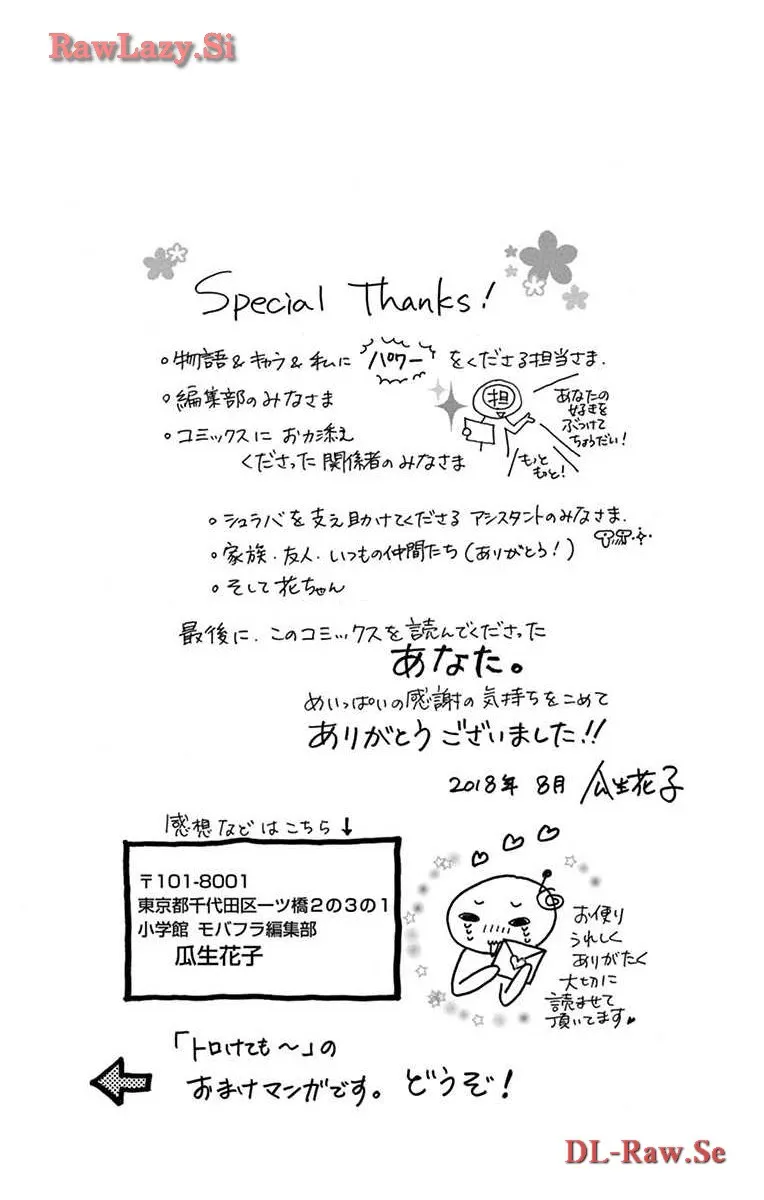 RawLazy.Si
Special Thanks!
○物語&キャラ&私に パワー をくださる担当さま.
○編集部のみなさま
担
あなたの
好きを
ぶつけて
ちょうだい!
もっと
もっと!
○コミックスに お力添え
くださった関係者のみなさま
○シュラバを支え助けてくださる アシスタントのみなさま.
○家族.友人.いつもの仲間たち(ありがとう!)
○そして花ちゃん
最後に.このコミックスを読んでくださった
あなた。
めいっぱいの感謝の気持ちをこめて
ありがとうございました!!
2018年 8月 瓜生花子
感想などはこちら↓
〒101-8001
東京都千代田区一ツ橋2の3の1
小学館 モバフラ編集部
瓜生花子
お便り
うれしく
ありがたく
大切に
読ませて
頂いてます♥
「トロけても〜」の
おまけマンガです。どうぞ!
DL-Raw.Se